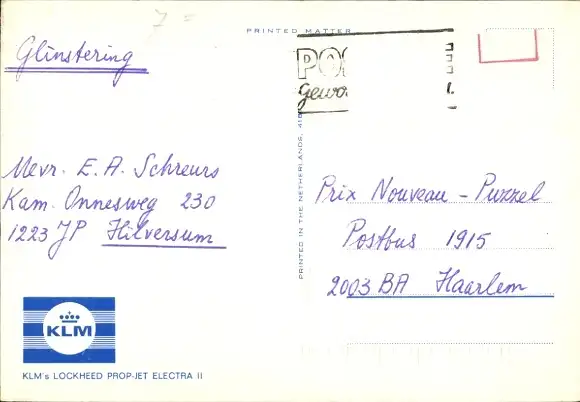 7 =
PRINTED MATTER
Glinstering
PO
Gewo
Mevr. E. A. Schreurs
Kam. Onnesweg 230
1223 JP Hilversum
PRINTED IN THE NETHERLANDS,
Prix Nouveau - Puzzel
Postbus 1915
2003 BA Haarlem
KLM
KLM's LOCKHEED PROP-JET ELECTRA II